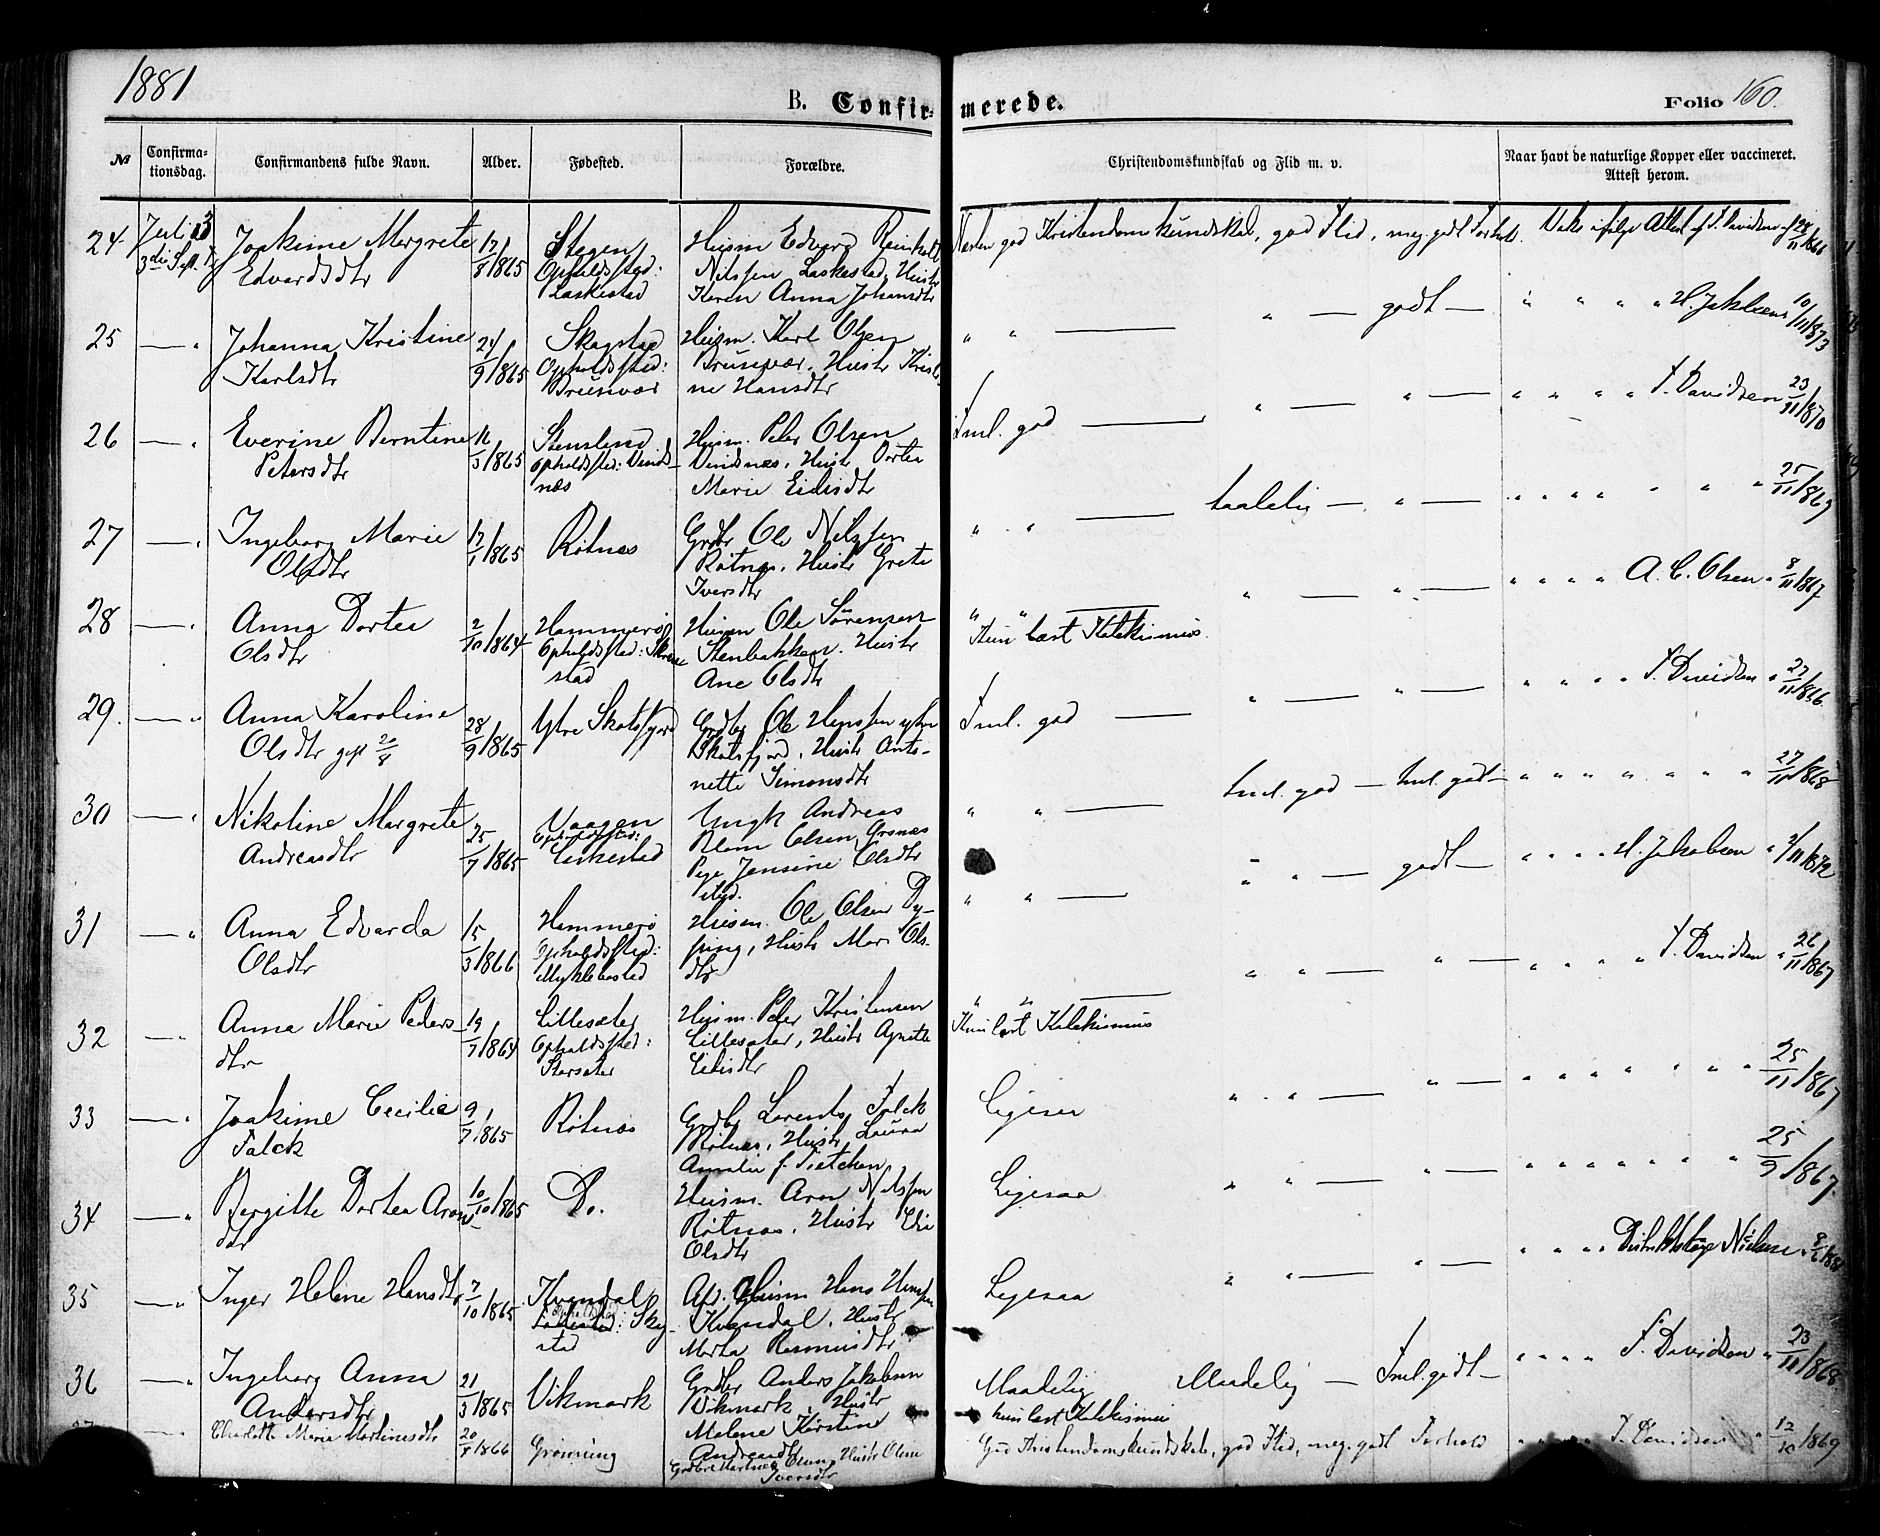 1881
B. Confirmerede.
Folio 160.
№
Confirmationsdag.
Confirmandens fulde Navn.
Alder.
Fødested.
Forældre.
Christendomskundskab og Flid m. v.
Naar havt de naturlige Kopper eller vaccineret. Attest herom.
24
Juli
Joakime Margrete
Edvardsdtr
17/8 1865
Stegen
Opholdssted:
Laskestad
Husm Edvard Reinholt
Nilssen Laskestad, Hustr
Karen Anna Johansdtr
Nesten god Kristendomskundskab, god Flid, meg. godt Forhold.
Vaks ifølge Attest af F. Davidsen af 28/11 1866
25
Johanna Kristine
Karlsdtr
24/9 1865
Skagstad
Opholdssted:
Brunvær
Husm. Karl Olsen
Brunvær. Hustr Kristi-
ne Hansdtr
" " — " — godt —
" " " " H. Jakobsen 10/11 1873
26
Everine Berntine
Petersdtr
16/3 1865
Stensland
Opholdssted: Vinds-
næs
Husm. Peter Olsen
Vindsnæs, Hustr Dortea
Marie Eidisdtr
Tml. god — " — " —
" " " " F. Davidsen 23/11 1870
27
Ingeborg Marie
Olsdtr
17/1 1865
Rötnæs
Grdbr Ole Nilssen
Rötnæs. Hustr Grete
Iversdtr
" " — taalelig — " —
" " " " " " " 25/11 1869
28
Anna Dortea
Olsdtr
2/10 1864
Hammerø
Opholdssted:
stad
Husm Ole Sörensen
Stenbakken. Hustr
Ane Olsdtr
" " — " — " —
Kun læst Katekismus.
" " " " A. C. Olsen " 8/11 1867
29.
Anna Karoline
Olsdtr
28/9 1865
Ytre Skotsfjord
Grdbr Ole Hanssen ytre
Skotsfjord, Hustr Anto-
nette Simonsdtr
Tml. god — " — " —
" " " " F. Davidsen " 27/11 1866
30
Nikoline Margrete
Andreasdtr
25/7 1865
Vaagen
Opholdssted:
Laskestad
Ungk Andreas
Blom Olsen Grønæs
Pige Jensine Olsdtr
ibid.
" " — tml. god — tml. godt —
" " " " " " " 27/11 1868
31
Anna Edvarda
Olsdtr
15/3 1866
Hammerø
Opholdssted:
Myklebostad
Husm. Ole Olsen Dy-
ping, Hustr Mar. Ols-
dtr
" " — " " — godt —
" " " " H. Jakobsen " 2/11 1872
32
Anna Marie Peders-
dtr
19/7 1864
Lillesæter
Opholdssted:
Storsæter
Husm. Peter Kristensen
Lillesæter, Hustr Agnette
Eidisdtr
" " — " " — " —
Kun læst Katekismus
" " " " F. Davidsen " 26/11 1867
33
Joakime Cecilie
Falck
9/7 1865
Rötnæs
Grdbr Lorents Falck
Rötnæs, Hustr Laura
Amalie f.
Ligesaa " " — " —
" " " " " " " 25/11 1867
34
Bergitte Dortea Arons-
dtr
10/10 1865
Do.
Husm. Aron Nilssen
Rötnæs. Hustr
Olsdtr
Ligesaa " " — " —
" " " " " " " 25/9 1867.
35
Inger Helene Hansdtr
7/10 1865
Kvandal
stad
Afd. Husm Hans Hanssen
Kvandal, Hustr
Marta Rasmusdtr
Ligesaa " " — " —
" " " " Distriktslæge Nielsen
36
Ingeborg Anna
Andersdtr
21/3 1865
Vikmark
Grdbr Anders Jakobsen
Vikmark, Hustr
Malene Kirstine
Andreasdtr
Maadelig Maadelig — Tml. godt —
kun læst Katekismus
" " " " F. Davidsen " 23/11 1868
Charlotte Marie Martinesdtr
1866
Grönning
Iversdtr
God Kristendomskundskab, god Flid, meg. godt Forhold
F. Davidsen " 12/10 1869